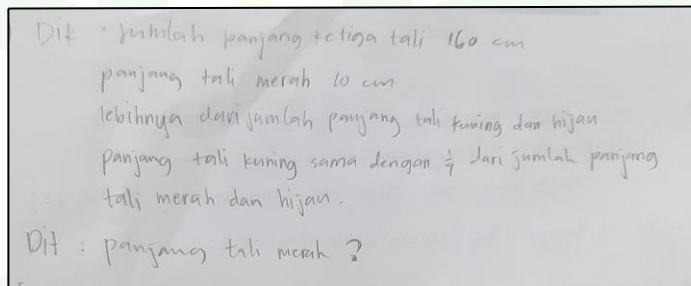 Dik • Jumlah panjang ketiga tali 160 cm
panjang tali merah 10 cm
lebihnya dari jumlah panjang tali kuning dan hijau
panjang tali kuning sama dengan 1/4 dari jumlah panjang
tali merah dan hijau.
Dit : panjang tali merah ?